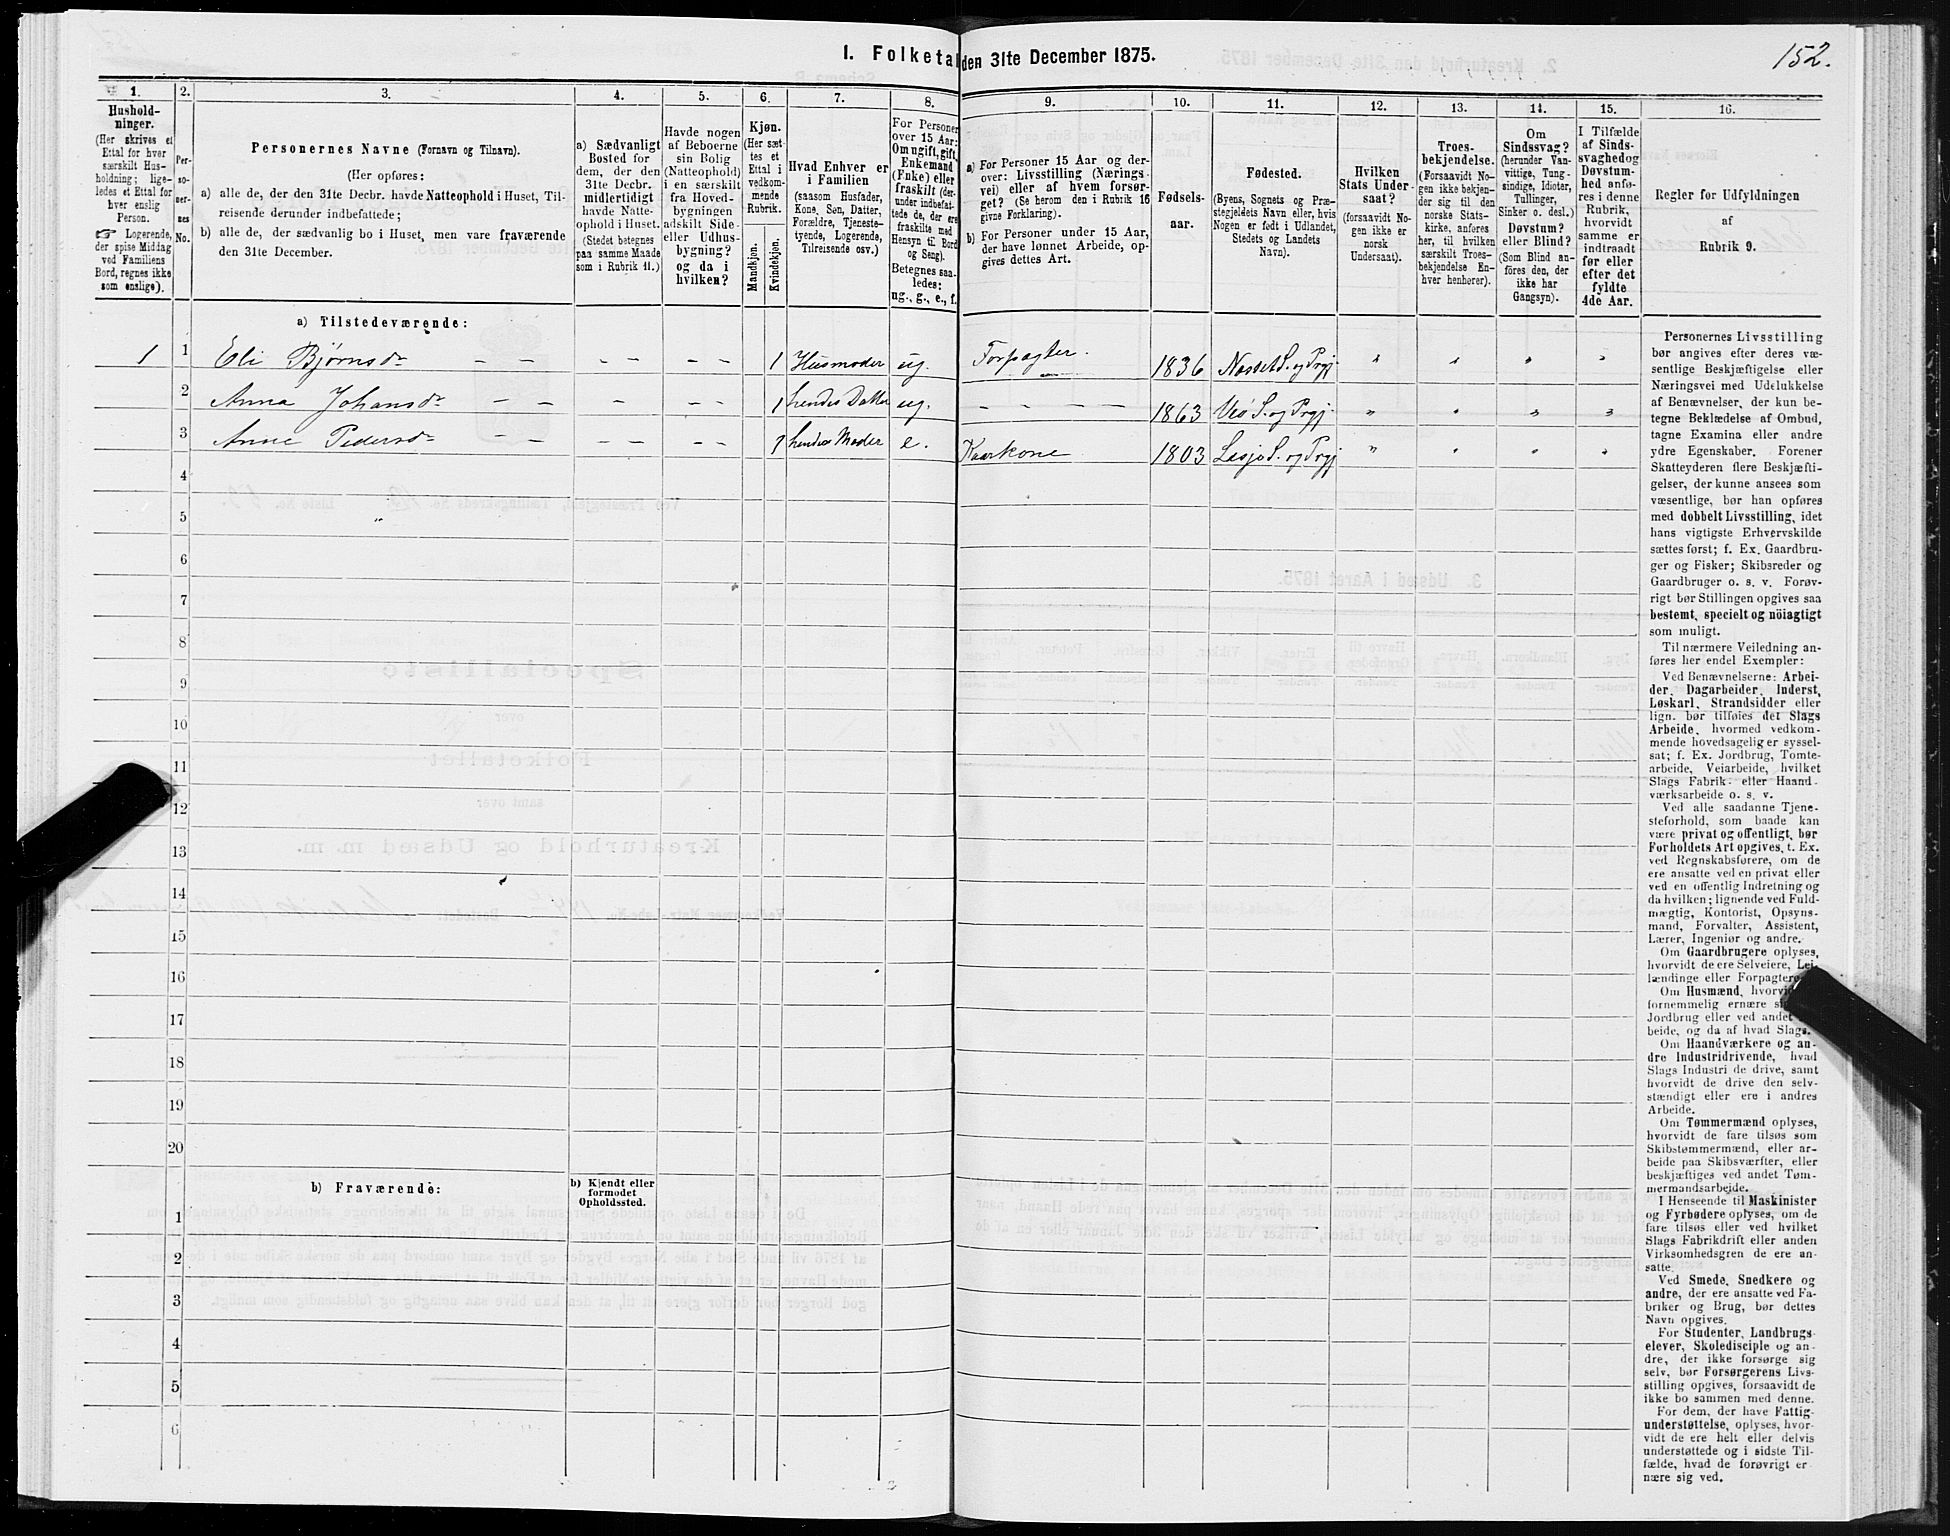 1. Folketal den 31te December 1875.
152.
1.
Hushold-
ninger.
(Her skrives et
Ettal for hver
særskilt Hus-
holdning; lige-
ledes et Ettal for
hver enslig
Person.
☞ Logerende,
der spise Middag
ved Familiens
Bord, regnes ikke
som enslige).
2.
Per-
so-
ner-
nes
No.
3.
Personernes Navne (Fornavn og Tilnavn).
(Her opføres:
a) alle de, der den 31te Decbr. havde Natteophold i Huset, Til-
reisende derunder indbefattede;
b) alle de, der sædvanlig bo i Huset, men vare fraværende
den 31te December.
4.
a) Sædvanligt
Bosted for
dem, der den
31te Decbr.
midlertidigt
havde Natte-
ophold i Huset.
(Stedet betegnes
paa samme Maade
som i Rubrik 11.)
5.
Havde nogen
af Beboerne
sin Bolig
(Natteophold)
i en særskilt
fra Hoved-
bygningen
adskilt Side-
eller Udhus-
bygning?
og da i
hvilken?
6.
Kjøn.
(Her sæt-
tes et
Ettal i
vedkom-
mende
Rubrik.
Mandkjøn.
Kvindekjøn.
7.
Hvad Enhver er
i Familien
(saasom Husfader,
Kone, Søn, Datter,
Forældre, Tjeneste-
tyende, Logerende,
Tilreisende osv.)
8.
For Personer
over 15 Aar:
Om ugift, gift,
Enkemand
(Enke) eller
fraskilt (der-
under indbefat-
tede de, der ere
fraskilte med
Hensyn til Bord
og Seng).
Betegnes saa-
ledes:
ug., g., e., f.
9.
a) For Personer 15 Aar og der-
over: Livsstilling (Nærings-
vei) eller af hvem forsør-
get? (Se herom den i Rubrik 16
givne Forklaring).
b) For Personer under 15 Aar,
der have lønnet Arbeide, op-
gives dettes Art.
10.
Fødsels-
aar.
11.
Fødested.
(Byens, Sognets og Præ-
stegjeldets Navn eller, hvis
Nogen er født i Udlandet,
Stedets og Landets
Navn).
12.
Hvilken
Stats Under-
saat?
(forsaavidt No-
gen ikke er
norsk
Undersaat).
13.
Troes-
bekjendelse.
(Forsaavidt No-
gen ikke bekjen-
der sig til den
norske Stats-
kirke, anføres
her, til hvilken
særskilt Troes-
bekjendelse En-
hver henhører).
14.
Om
Sindssvag?
(herunder Van-
vittige, Tung-
sindige, Idioter,
Tullinger,
Sinker o. desl.)
Døvstum?
eller Blind?
(Som Blind an-
føres den, der
ikke har
Gangsyn).
15.
I Tilfælde
af Sinds-
svaghed og
Døvstum-
hed anfø-
res i denne
Rubrik,
hvorvidt
samme er
indtraadt
før eller
efter det
fyldte
4de Aar.
16.
Regler for Udfyldningen
af
Rubrik 9.
a) Tilstedeværende:
1 1 Eli Bjørnsdr – – – – – – 1 Husmoder ug. Forpagter. 1836 Nesset S. og Prgj. " " " "
2 Anna Johansdr – – – – – – 1 hendes Datter ug. – – – – 1863 Veø S. og Prgj. " " " "
3 Anne Pedersdr – – – – – – 1 hendes Moder e. Kaarkone 1803 Lesje S. og Prgj. " " " "
4
5
6
7
8
9
10
11
12
13
14
15
16
17
18
19
20
b) Fraværende:
b) Kjendt eller
formodet
Opholdssted.
1
2
3
4
5
6
Personernes Livsstilling
bør angives efter deres væ-
sentlige Beskjæftigelse eller
Næringsvei med Udelukkelse
af Benævnelser, der kun be-
tegne Beklædelse af Ombud,
tagne Examina eller andre
ydre Egenskaber. Forener
Skatteyderen flere Beskjæfti-
gelser, der kunne ansees som
væsentlige, bør han opføres
med dobbelt Livsstilling, idet
hans vigtigste Erhvervskilde
sættes først; f. Ex. Gaardbru-
ger og Fisker; Skibsreder og
Gaardbruger o. s. v. Forøv-
rigt bør Stillingen opgives saa
bestemt, specielt og nöiagtigt
som muligt.
Til nærmere Veiledning an-
føres her endel Exempler:
Ved Benævnelserne: Arbei-
der, Dagarbeider, Inderst,
Løskarl, Strandsidder eller
lign. bør tilføies det Slags
Arbeide, hvormed vedkom-
mende hovedsagelig er syssel-
sat; f. Ex. Jordbrug, Tomte-
arbeide, Veiarbeide, hvilket
Slags Fabrik- eller Haand-
værksarbeide o. s. v.
Ved alle saadanne Tjene-
steforhold, som baade kan
være privat og offentligt, bør
Forholdets Art opgives, t. Ex.
ved Regnskabsførere, om de
ere ansatte ved en privat eller
ved en offentlig Indretning og
da hvilken; lignende ved Fuld-
mægtig, Kontorist, Opsyns-
mand, Forvalter, Assistent,
Lærer, Ingeniør og andre.
Om Gaardbrugere oplyses,
hvorvidt de ere Selveiere, Lei-
lændinge eller Forpagtere.
Om Husmænd, hvorvidt
fornemmelig ernære
Jordbrug eller ved andet
beide, og da af hvad Slags.
Om Haandværkere og an-
dre Industridrivende, hvad
Slags Industri de drive, samt
hvorvidt de drive den selv-
stændigt eller ere i andres
Arbeide.
Om Tømmermænd oplyses,
hvorvidt de fare tilsøs som
Skibstømmermænd, eller ar-
beide paa Skibsværfter, eller
beskjæftiges ved andet Tøm-
mermandsarbeide.
I Henseende til Maskinister
og Fyrbødere oplyses, om de
fare tilsøs eller ved hvilket
Slags Fabrikdrift eller anden
Virksomhedsgren de ere an-
satte.
Ved Smede, Snedkere og
andre, der ere ansatte ved Fa-
briker og Brug, bør dettes
Navn opgives.
For Studenter, Landbrugs-
elever, Skoledisciple og an-
dre, der ikke forsørge sig
selv, bør Forsørgerens Livs-
stilling opgives, forsaavidt de
ikke bo sammen med denne.
For dem, der have Fattig-
understøttelse, oplyses, hvor-
vidt de ere helt eller delvis
understøttede og i sidste Til-
fælde, hvad de forøvrigt er-
nære sig ved.